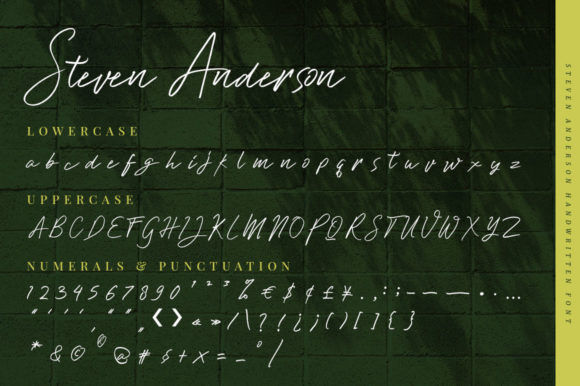 Steven Anderson
LOWERCASE
a b c d e f g h i j k l m n o p q r s t u v w x y z
UPPERCASE
A B C D E F G H I J K L M N O P Q R S T U V W X Y Z
NUMERALS & PUNCTUATION
1 2 3 4 5 6 7 8 9 0 ¹ ² ³ % € $ ¢ £ ¥ . , : ; – — _ . · …
" ' ' ' , " " „ ‹ › « » / \ ? ! ¿ ¡ ( ) [ ] { }
* & © ® @ # $ + x = _ ° /
STEVEN ANDERSON HANDWRITTEN FONT